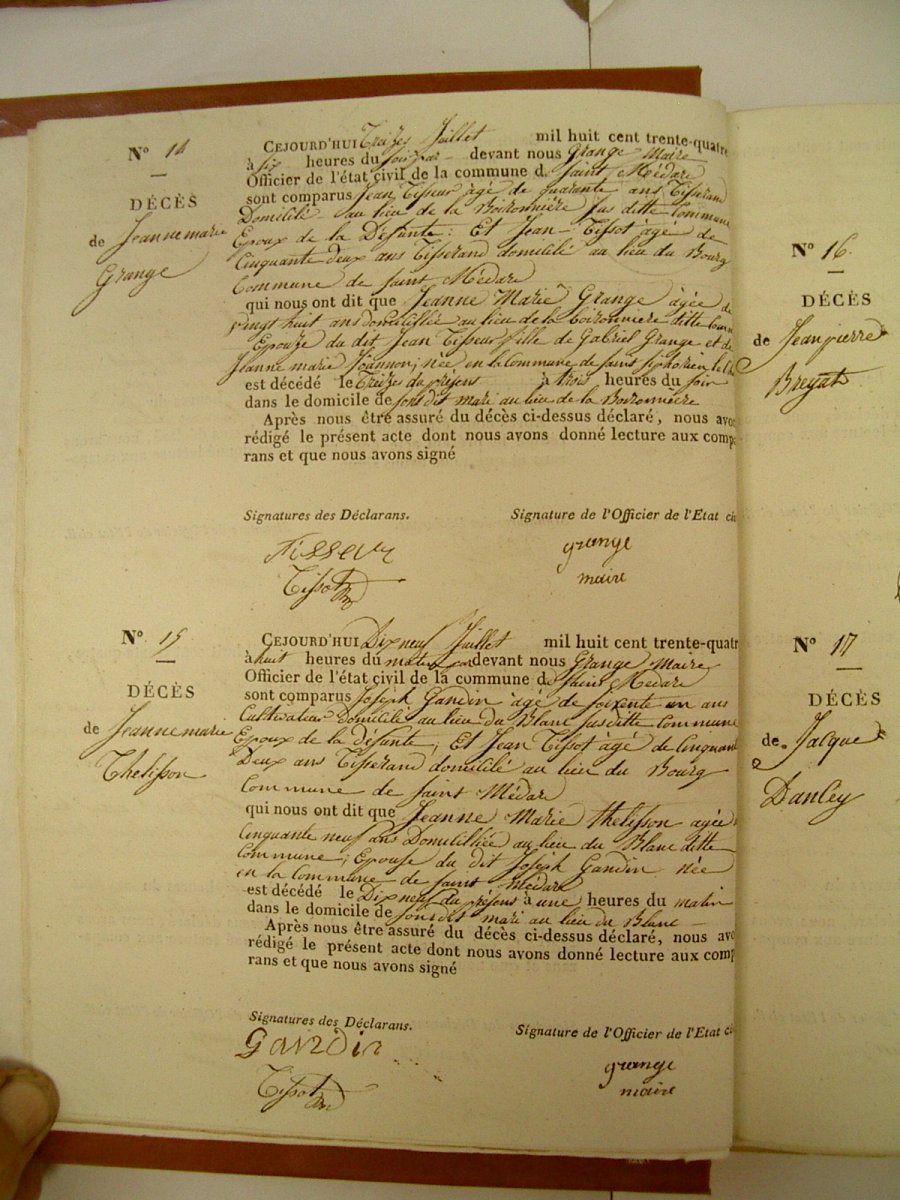 N° 14
DÉCÈS
de Jeanne marie
Grange
CEJOURD'HUI Treize Juillet mil huit cent trente-quatre
à six heures du soir par devant nous Grange Maire
Officier de l'état civil de la commune d. Saint Médard
sont comparus Jean Tisseur âgé de quarente ans Tisserand
Domicilié au lieu de la Boironnière sus ditte Commune
Epoux de la Défunte : Et Jean Tissot âgé de
Cinquante deux ans Tisserand domicilié au lieu du Bourg
Commune de Saint Médard
qui nous ont dit que Jeanne Marie Grange âgée de
vingt huit ans domicilliée au lieu de la boironniere ditte Comm
Epouze du dit Jean Tisseur fille de Gabriel Grange et de
Jeanne marie Joannon, née en la Commune de Saint
est décédé le Treize du présent à trois heures du soir
dans le domicile de sondit mari au lieu de la Boironnière
Après nous être assuré du décès ci-dessus déclaré, nous avo
rédigé le présent acte dont nous avons donné lecture aux comp
rans et que nous avons signé
Signatures des Déclarans. Signature de l'Officier de l'Etat ci
Tisseur grange
Tissot maire
N° 15
DÉCÈS
de Jeanne marie
Thelisson
CEJOURD'HUI Dix neuf Juillet mil huit cent trente-quatr
à huit heures du matin par devant nous Grange Maire
Officier de l'état civil de la commune de Saint Médard
sont comparus Joseph Gandin âgé de soixente un ans
Cultivateur domicilié au lieu du Blanc susditte Commune
Epoux de la défunte, Et Jean Tissot âgé de Cinquant
Deux ans Tisserand domicilié au lieu du Bourg
Commune de Saint Médard
qui nous ont dit que Jeanne Marie thelisson agée
Cinquante neuf ans Domicilliée au lieu du Blanc ditte
Commune, Epouse du dit Joseph Gandin Née
en la Commune de Saint Médard
est décédé le Dix neuf du présent à une heures du matin
dans le domicile de sondit mari au lieu du Blanc
Après nous être assuré du décès ci-dessus déclaré, nous avo
rédigé le présent acte dont nous avons donné lecture aux comp
rans et que nous avons signé
Signatures des Déclarans. Signature de l'Officier de l'Etat ci
Gandin grange
Tissot maire
N° 16
DÉCÈS
de Jean pierre
Breyat
N° 17
DÉCÈS
de Jacque
Danley